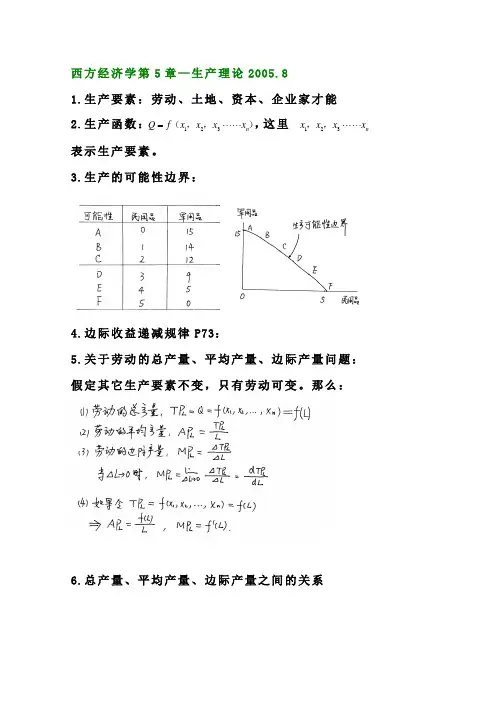 西方经济学第5章—生产理论2005.8
1.生产要素：劳动、土地、资本、企业家才能
2.生产函数：Q=f（x₁，x₂，x₃……xₙ），这里 x₁，x₂，x₃……xₙ
表示生产要素。
3.生产的可能性边界：
可能性 民用品 军用品
A 0 15
B 1 14
C 2 12
D 3 9
E 4 5
F 5 0
军用品
15 A
B
生产可能性边界
C
D
E
F
0 5 民用品
4.边际收益递减规律P73：
5.关于劳动的总产量、平均产量、边际产量问题：
假定其它生产要素不变，只有劳动可变。那么：
(1)劳动的总产量，TP_L=Q=f(x₁,x₂,…,xₙ)=f(L)
(2)劳动的平均产量，AP_L=TP_L/L
(3)劳动的边际产量，MP_L=ΔTP_L/ΔL
当ΔL→0时，MP_L=lim ΔL→0 ΔTP_L/ΔL=dTP_L/dL
(4)如果令 TP_L=f(x₁,x₂,…,xₙ)=f(L)
⇒AP_L=f(L)/L，MP_L=f'(L).
6.总产量、平均产量、边际产量之间的关系